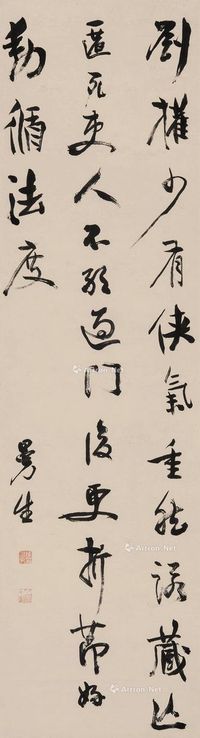 劉權少有俠氣重然諾藏亡
匿死吏人不敢過門後更折節好
勒循法度
曼生